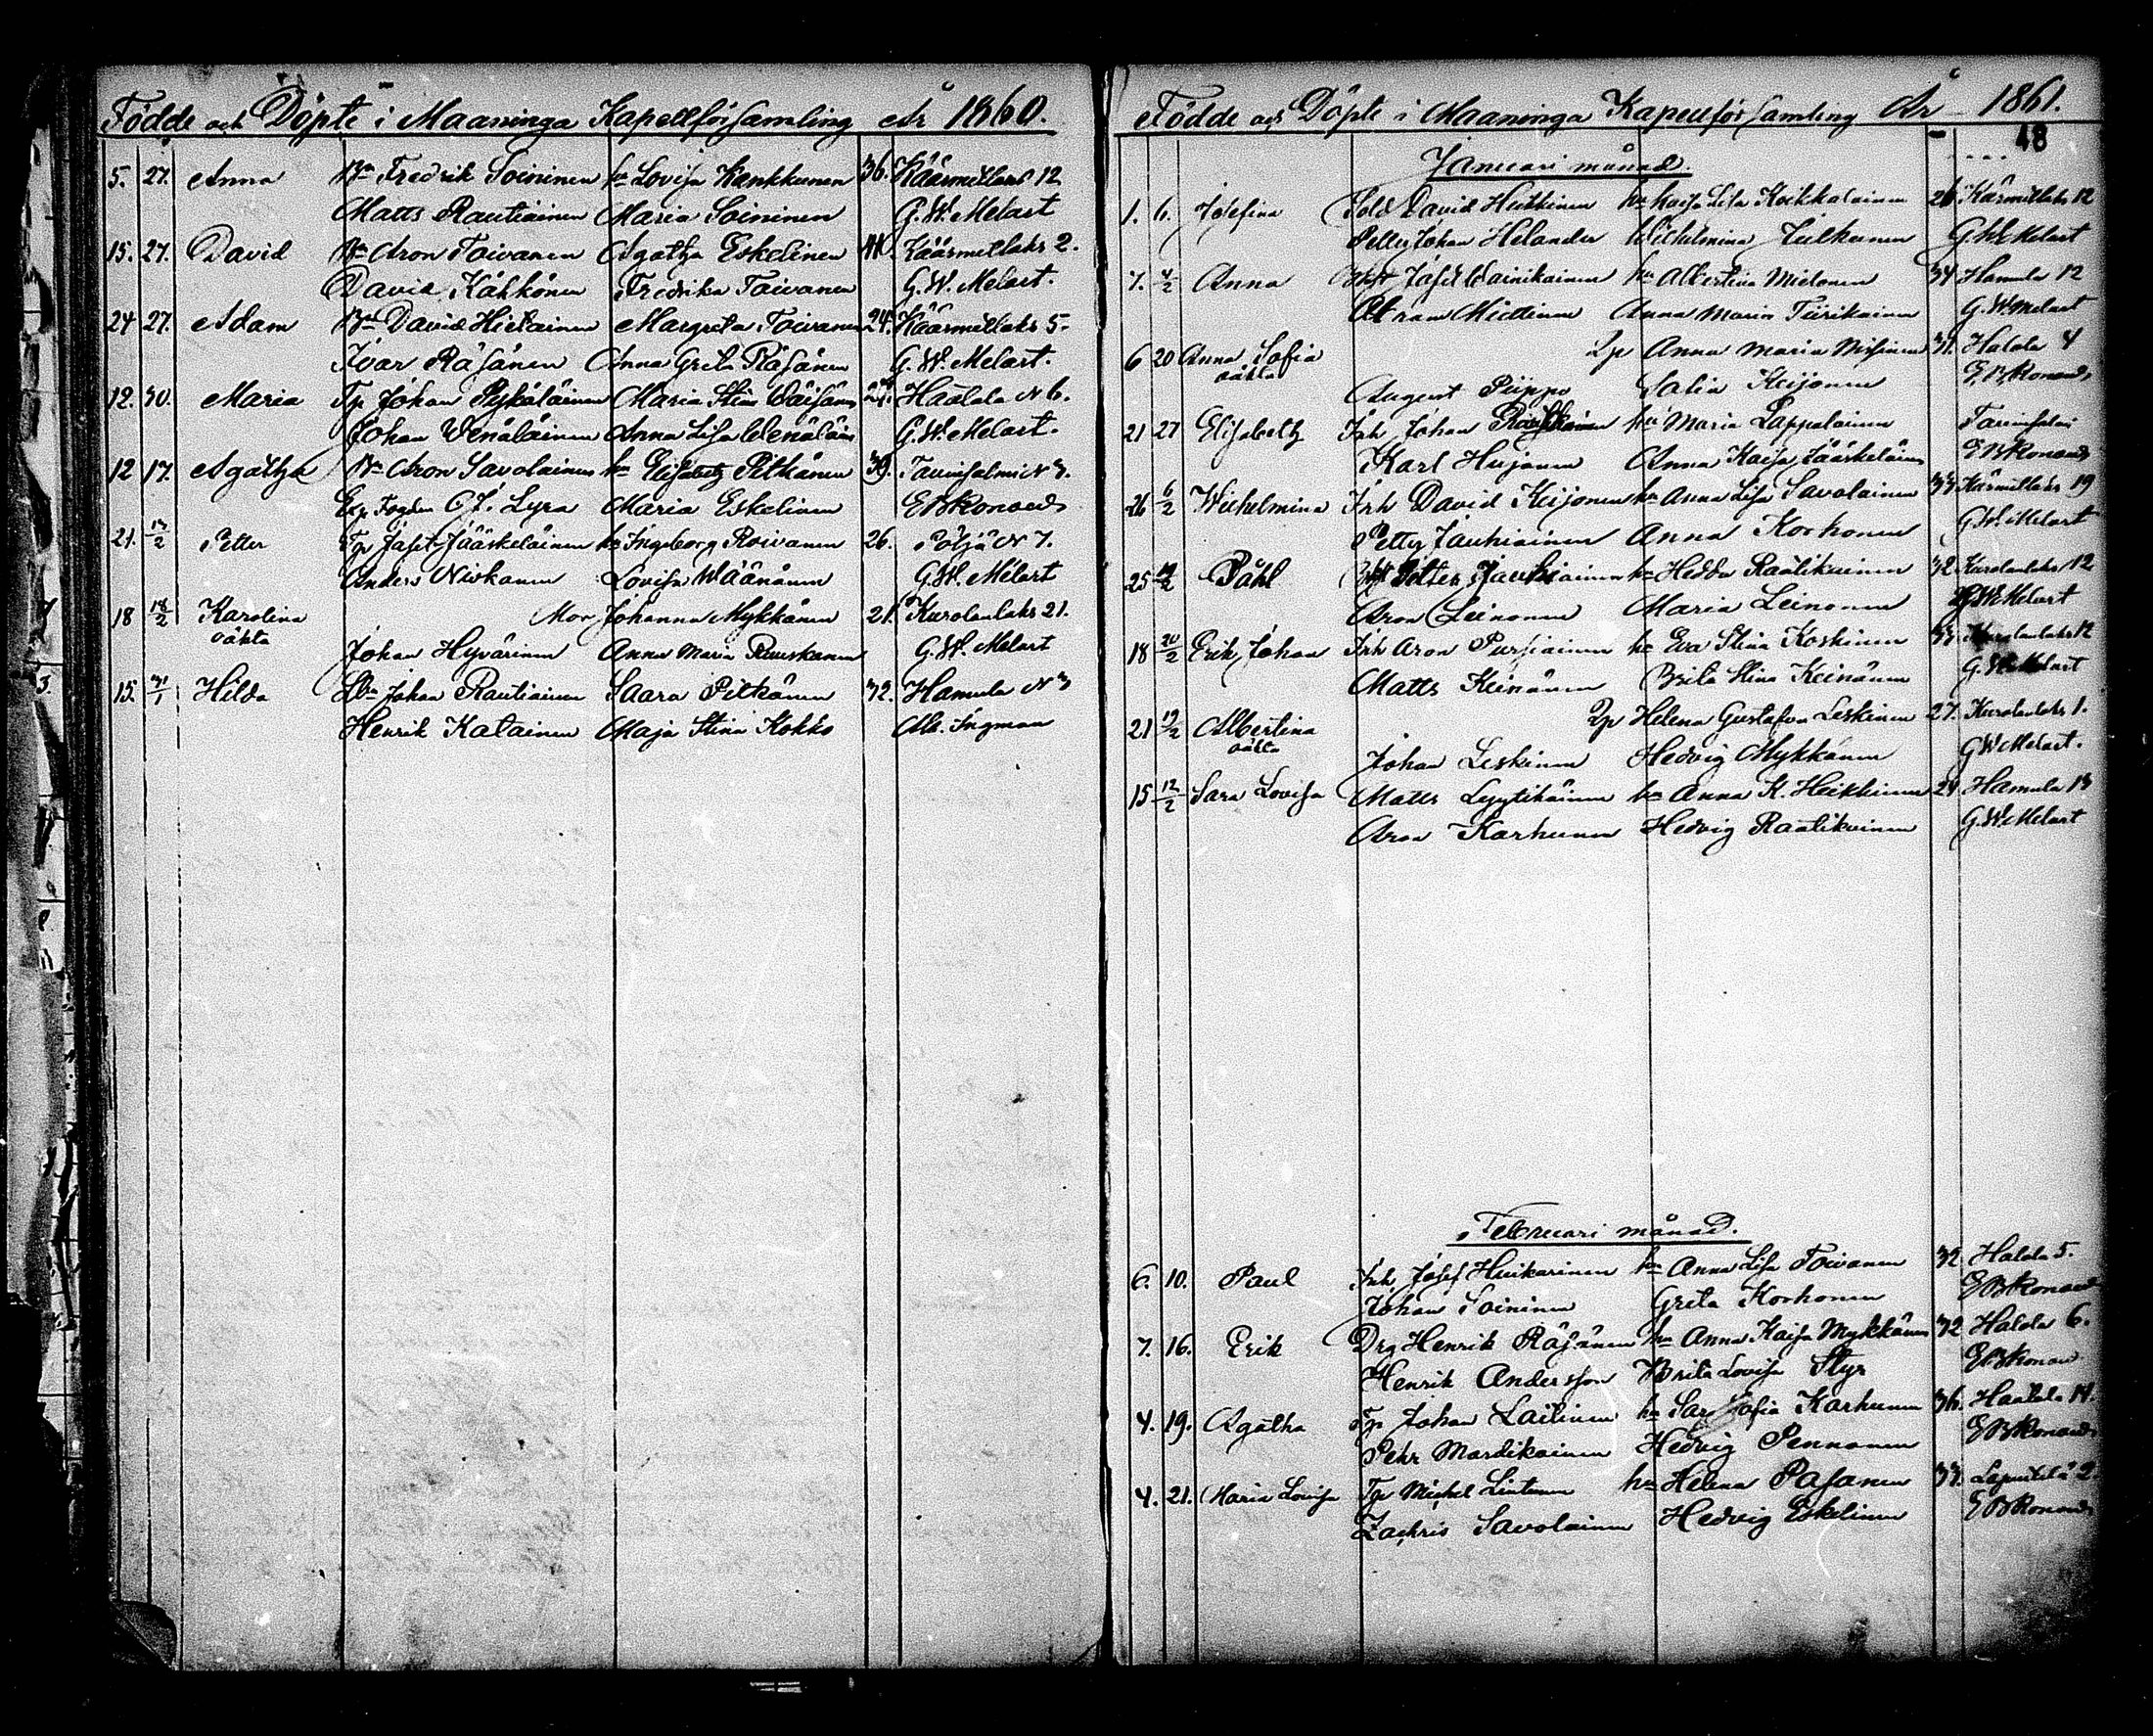 Födde och Döpte i Maaninga Kapellförsamling År 1860.
5. 27. Anna Bn Fredrik Soininen hu Lovisa Kankkunen 36. Käärmelaks 12
Matts Rautiainen Maria Soininen G. W. Melart
15. 27. David Bn Aron Toivanen Agatha Eskelinen 41. Käärmelaks 2.
David Kähkönen Fredrika Toivanen G. W. Melart.
24 27. Adam David Hietainen Margreta Toivanen 24. Käärmelaks 5.
Ivar Räsänen Anna Greta Räsänen G. W. Melart.
12. 30. Maria Tp Johan Pykäläinen Maria Stina Väisänen Haatala N 6.
Johan Venäläinen Anna Lisa Venäläin G. W. Melart.
12 17. Agatha Bn Aron Savolainen hu Elisabeth Pitkänen 39. Tavinsalmi N 3.
Exp Fogden C. J. Lyra Maria Eskelinen
21. 13/2 Petter Tp Jafet Jääskeläinen hu Ingeborg Roivanen 26. Pöljä N 7.
Anders Niskanen Lovisa Wäänänen G. W. Melart
18 18/2 Karolina Mor Johanna Mykkänen 21. Kurolanlaks 21.
oäkta
Johan Hyvärinen Anna Maria Ruuskanen G. W. Melart
15. 31/1 Hilda Johan Rautiainen Saara Pitkänen 32. Hamula N 3
Henrik Katainen Maja Stina Kokko Alb. Ingman
Födde och Döpte i Maaninga Kapellförsamling År 1861.
48
Januari månad.
1. 6. Josefina Sold David Huttunen hu Kaisa Lisa Kokkalainen 26 Kärmelaks 12
Petter Johan Helander Wilhelmina Julkunen G. W. Melart
7. 4/2 Anna Josef Wainikainen hu Albertina Mielonen 34 Hamula 12
Abram Miettinen Anna Maria Tiirikainen G. W. Melart
6 20 Anna Sofia Anna Maria Misinen 31. Halola 4
oäkta
August Piippo Salia Keijonen
21 27 Elisabeth Inh Johan hu Maria Lappalainen
Karl Hujanen Anna Kaisa Jääskeläin
26 6/2 Wilhelmina Inh David Keijonen hu Anna Lisa Savolainen 33 Kärmelaks 19
Petter Jauhiainen Anna Korhonen G. W. Melart
25 Påhl Petter Jauhiainen hu Hedda Raatikainen 32 Kurolanlaks 12
Aron Leinonen Maria Leinonen G. W. Melart
18 20/2 Erik Johan Inh Aron Pursiainen hu Eva Stina Koskinen 33. Kurolanlaks 12
Matts Keinänen Brita Stina Keinänen G. W. Melart
21 19/2 Albertina Helena Gustafva Leskinen 27. Kurolanlaks 1.
oäkta
Johan Leskinen Hedvig Mykkänen G. W. Melart.
15 12/2 Sara Lovisa Matts Lyytikäinen hu Anna K. Heikkinen 24 Hamula 13
Aron Karhunen Hedvig Raatikainen G. W. Melart
Februari månad.
6. 10. Paul Inh Josef Huikarinen hu Anna Lisa Toivanen 32 Halola 5.
Johan Soininen Greta Korhonen
7. 16. Erik Drg Henrik Räsänen hu Anna Kaisa Mykkänen 32 Halola 6.
Henrik Andersson Brita Lovisa Styr
4. 19. Agatha Tp Johan Laitinen hu Sara Sofia Karhunen 36. Haatala 14.
Pehr Mardikainen Hedvig Pennanen
4. 21. Maria Lovisa Tp Mickel Lintunen hu Helena Pasanen 33. Lapinlaks 2
Zachris Savolainen Hedvig Eskelinen